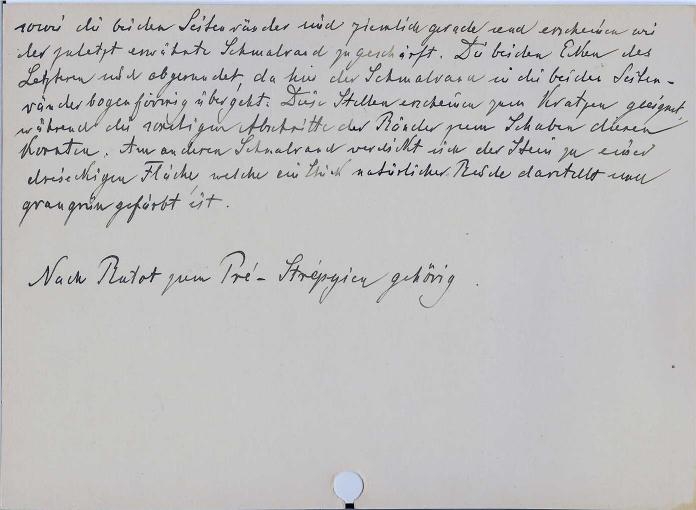 sowie die beiden Seitenränder sind ziemlich gerade und erscheinen wie
der zuletzt erwähnte Schmalrand zugeschärft. Die beiden Ecken des
Letztern sind abgerundet, da hier der Schmalrand in die beiden Seiten-
ränder bogenförmig übergeht. Diese Stellen erscheinen zum Kratzen geeignet,
während die übrigen Abschnitte der Ränder zum Schaben dienen
konnten. Am anderen Schmalrand verdickt sich der Stein zu einer
dreieckigen Fläche, welche ein Stück natürlicher Rinde darstellt und
graugrün gefärbt ist.
Nach Rutot zum Pré-Strépyien gehörig.